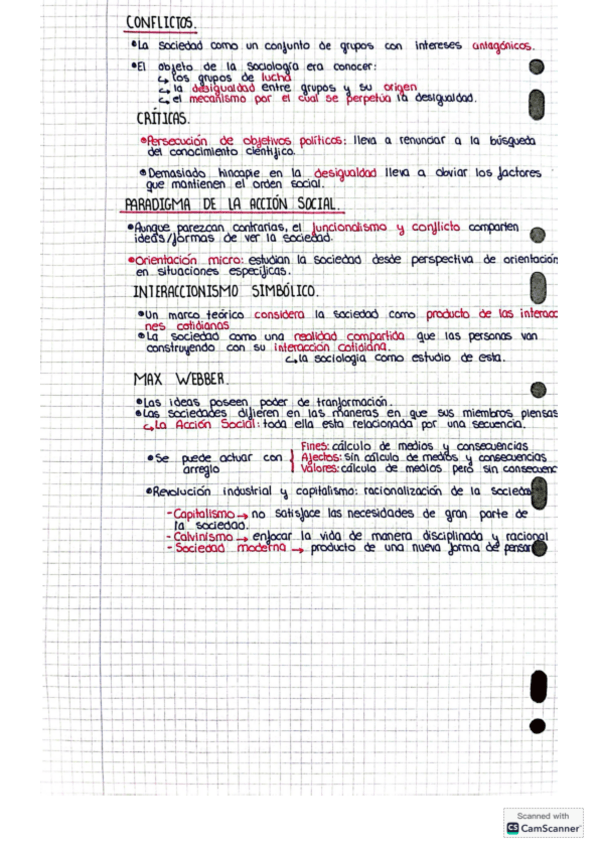 CONFLICTOS.
•La sociedad como un conjunto de grupos con intereses antagónicos.
•El objeto de la sociología era conocer:
↳ los grupos de lucha
↳ la desigualdad entre grupos y su origen
↳ el mecanismo por el cual se perpetúa la desigualdad.
CRÍTICAS.
•Persecución de objetivos políticos: lleva a renunciar a la búsqueda
del conocimiento científico.
•Demasiado hincapie en la desigualdad lleva a obviar los factores
que mantienen el orden social.
PARADIGMA DE LA ACCIÓN SOCIAL.
•Aunque parezcan contrarias, el funcionalismo y conflicto comparten
ideas/formas de ver la sociedad.
•Orientación micro: estudian la sociedad desde perspectiva de orientación
en situaciones específicas.
INTERACCIONISMO SIMBÓLICO.
•Un marco teórico considera la sociedad como producto de las interacc
nes cotidianas
•La sociedad como una realidad compartida que las personas van
construyendo con su interacción cotidiana.
↳ la sociología como estudio de esta.
MAX WEBBER.
•Las ideas poseen poder de tranformación.
•Las sociedades difieren en las maneras en que sus miembros piensas
↳ La Acción Social: toda ella esta relacionada por una secuencia.
Fines: cálculo de medios y consecuencias
•Se puede actuar con Afectos: sin cálculo de medios y consecuencias
arreglo Valores: cálculo de medios pero sin consecuenc
•Revolución industrial y capitalismo: racionalización de la socieda
- Capitalismo → no satisface las necesidades de gran parte de
la sociedad.
- Calvinismo → enfocar la vida de manera disciplinada y racional
- Sociedad moderna → producto de una nueva forma de pensar
Scanned with
CS CamScanner